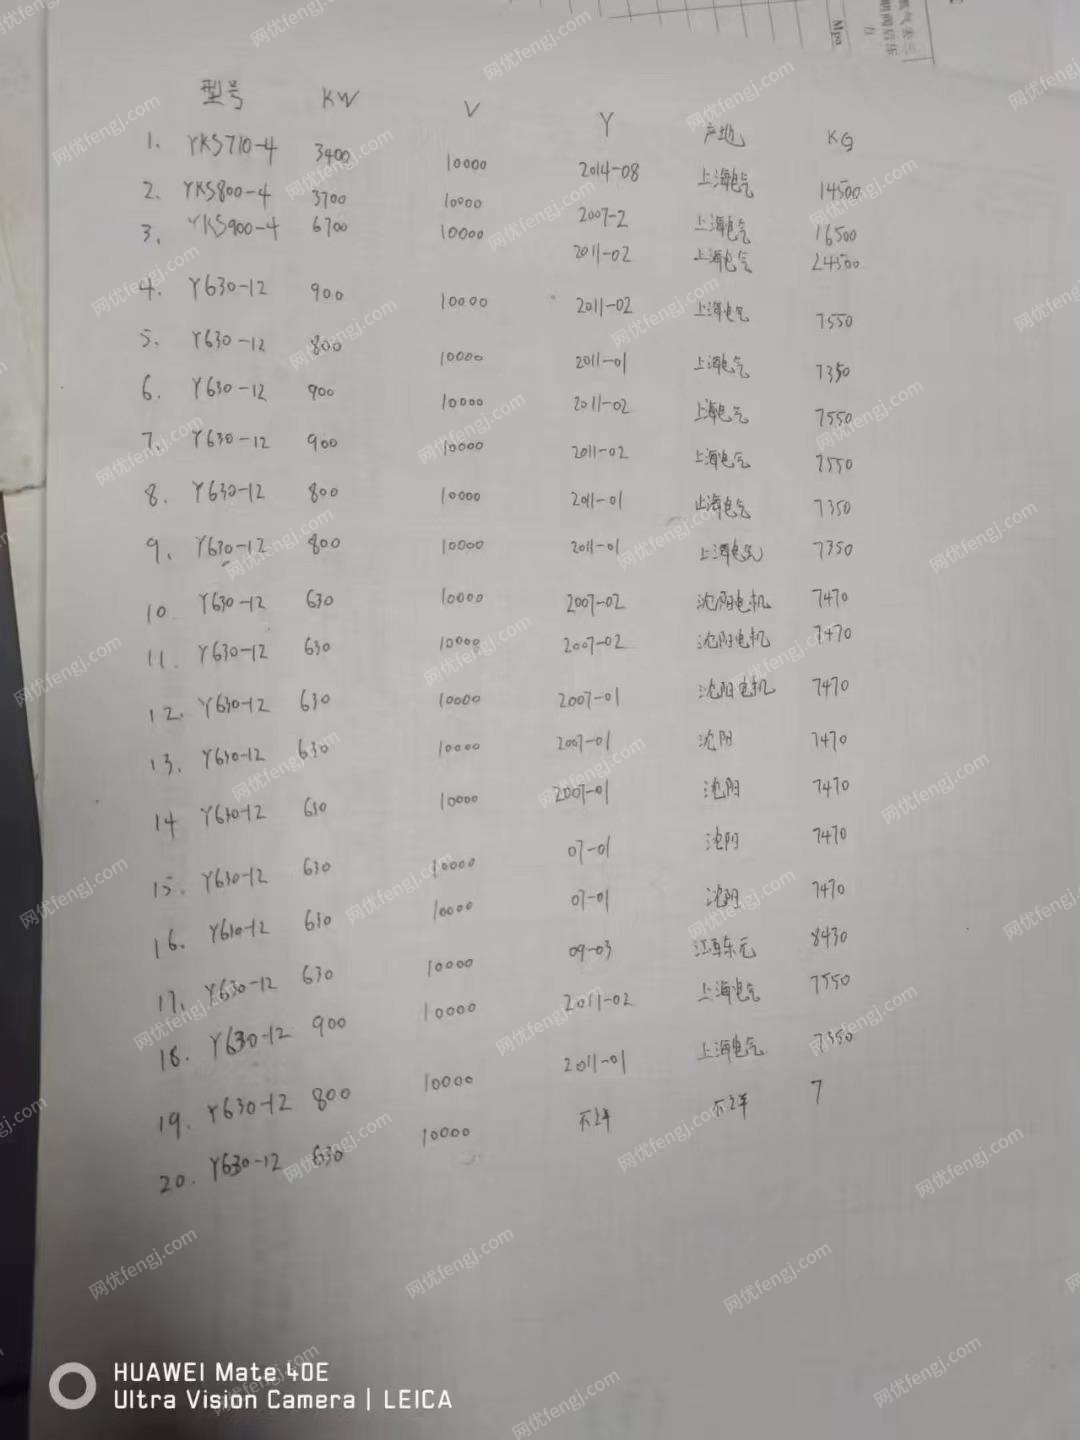 型号 KW V Y 产地 KG
1. YKS710-4 3400 10000 2014-08 上海电气 14500
2. YKS800-4 3700 10000 2007-2 上海电气 16500
3. YKS900-4 6700 10000 2011-02 上海电气 24500
4. Y630-12 900 10000 2011-02 上海电气 7550
5. Y630-12 800 10000 2011-01 上海电气 7350
6. Y630-12 900 10000 2011-02 上海电气 7550
7. Y630-12 900 10000 2011-02 上海电气 7550
8. Y630-12 800 10000 2011-01 上海电气 7350
9. Y630-12 800 10000 2011-01 上海电气 7350
10. Y630-12 630 10000 2007-02 沈阳电机 7470
11. Y630-12 630 10000 2007-02 沈阳电机 7470
12. Y630-12 630 10000 2007-01 沈阳电机 7470
13. Y630-12 630 10000 2007-01 沈阳 7470
14 Y630-12 630 10000 2007-01 沈阳 7470
15. Y630-12 630 10000 07-01 沈阳 7470
16. Y610-12 610 10000 07-01 沈阳 7470
17. Y630-12 630 10000 09-03 东元 8430
18. Y630-12 900 10000 2011-02 上海电气 7550
19. Y630-12 800 10000 2011-01 上海电气 7350
20. Y630-12 630 10000 不详 不详 7
Mpa
网优fengj.com
HUAWEI Mate 40E
Ultra Vision Camera | LEICA